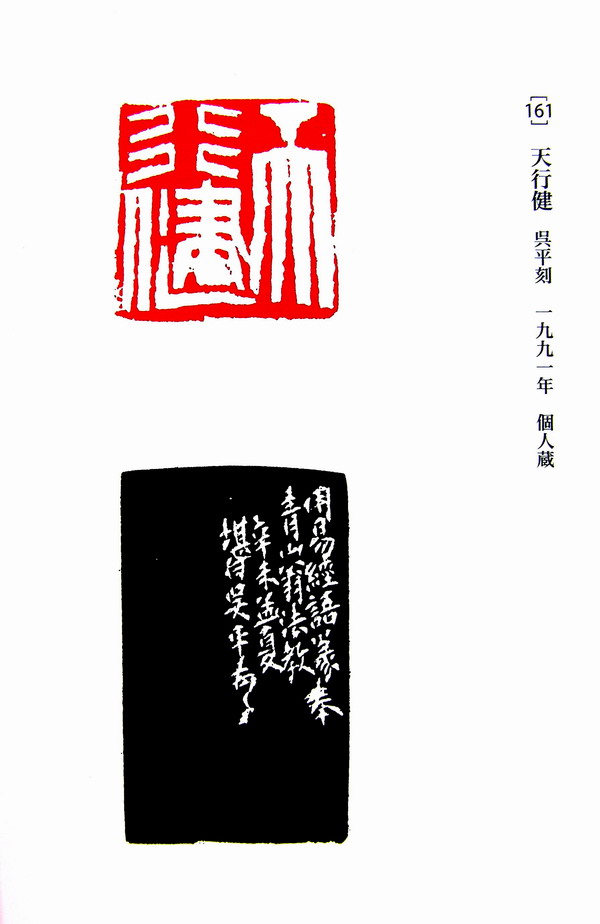 [161] 天行健 呉平刻 一九九一年 個人蔵
天行健
用易經語篆奉
青山翁法教
辛未孟夏
堪白吳平